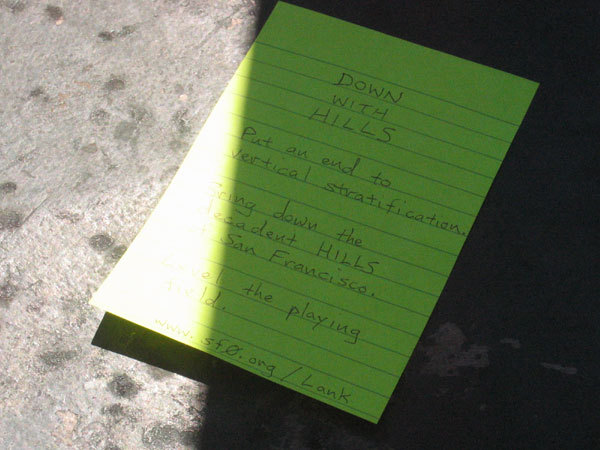 DOWN
WITH
HILLS
Put an end to
vertical stratification.
Bring down the
decadent HILLS
of San Francisco.
Level the playing
field.
www.sf0.org/Lank